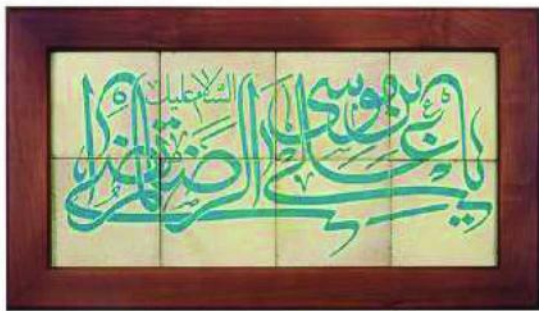 السلام عليك
يا علي بن موسى الرضا المرتضى